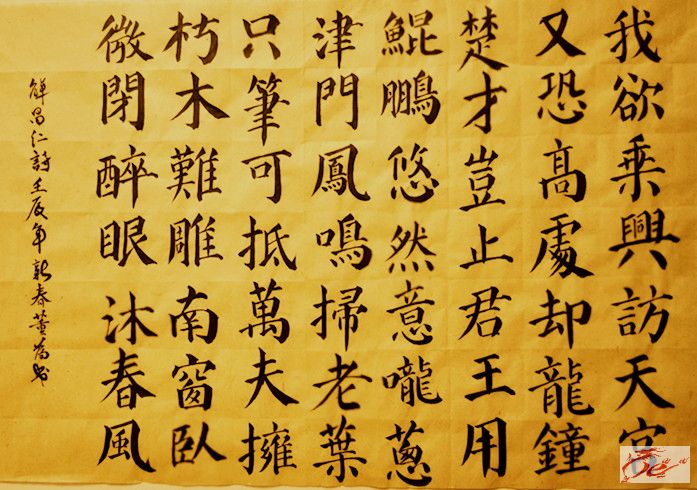 我欲乘興訪天宮
又恐高處却龍鐘
楚才豈止君王用
鯤鵬悠然意嚨蔥
津門鳳鳴掃老葉
只筆可抵萬夫擁
朽木難雕南窗臥
微閉醉眼沐春風
昌仁詩壬辰年新春董書